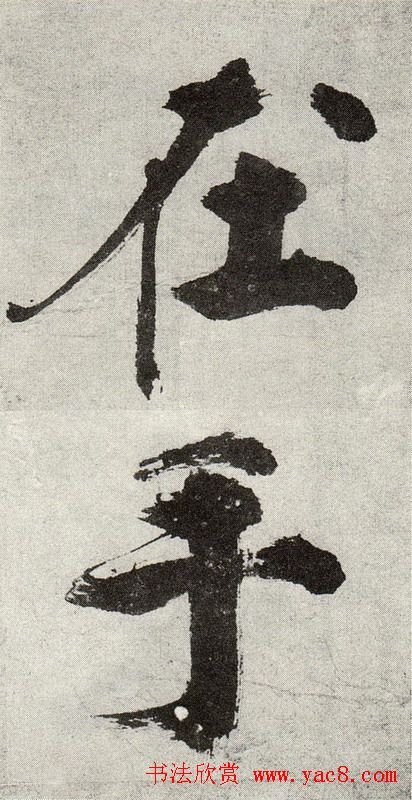 在
乎
书法欣赏 www.yac8.com